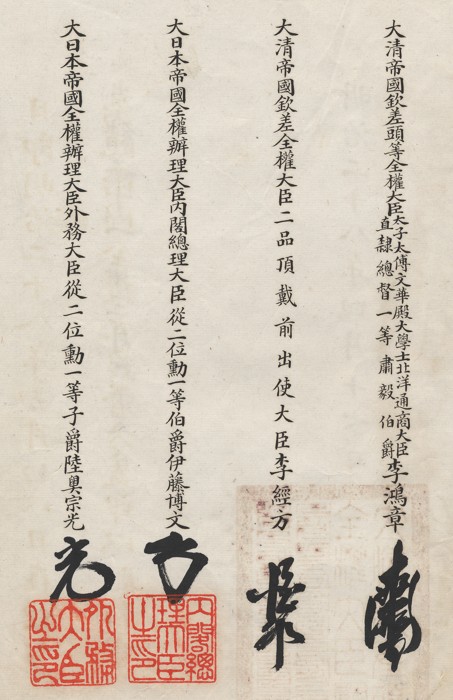 大清帝國欽差頭等全權大臣太子太傅文華殿大學士北洋通商大臣直隸總督一等肅毅伯爵李鴻章
大清帝國欽差全權大臣二品頂戴前出使大臣李經方
大日本帝國全權辦理大臣內閣總理大臣從二位勳一等伯爵伊藤博文
大日本帝國全權辦理大臣外務大臣從二位勳一等子爵陸奧宗光
內閣總理大臣之印
外務大臣之印